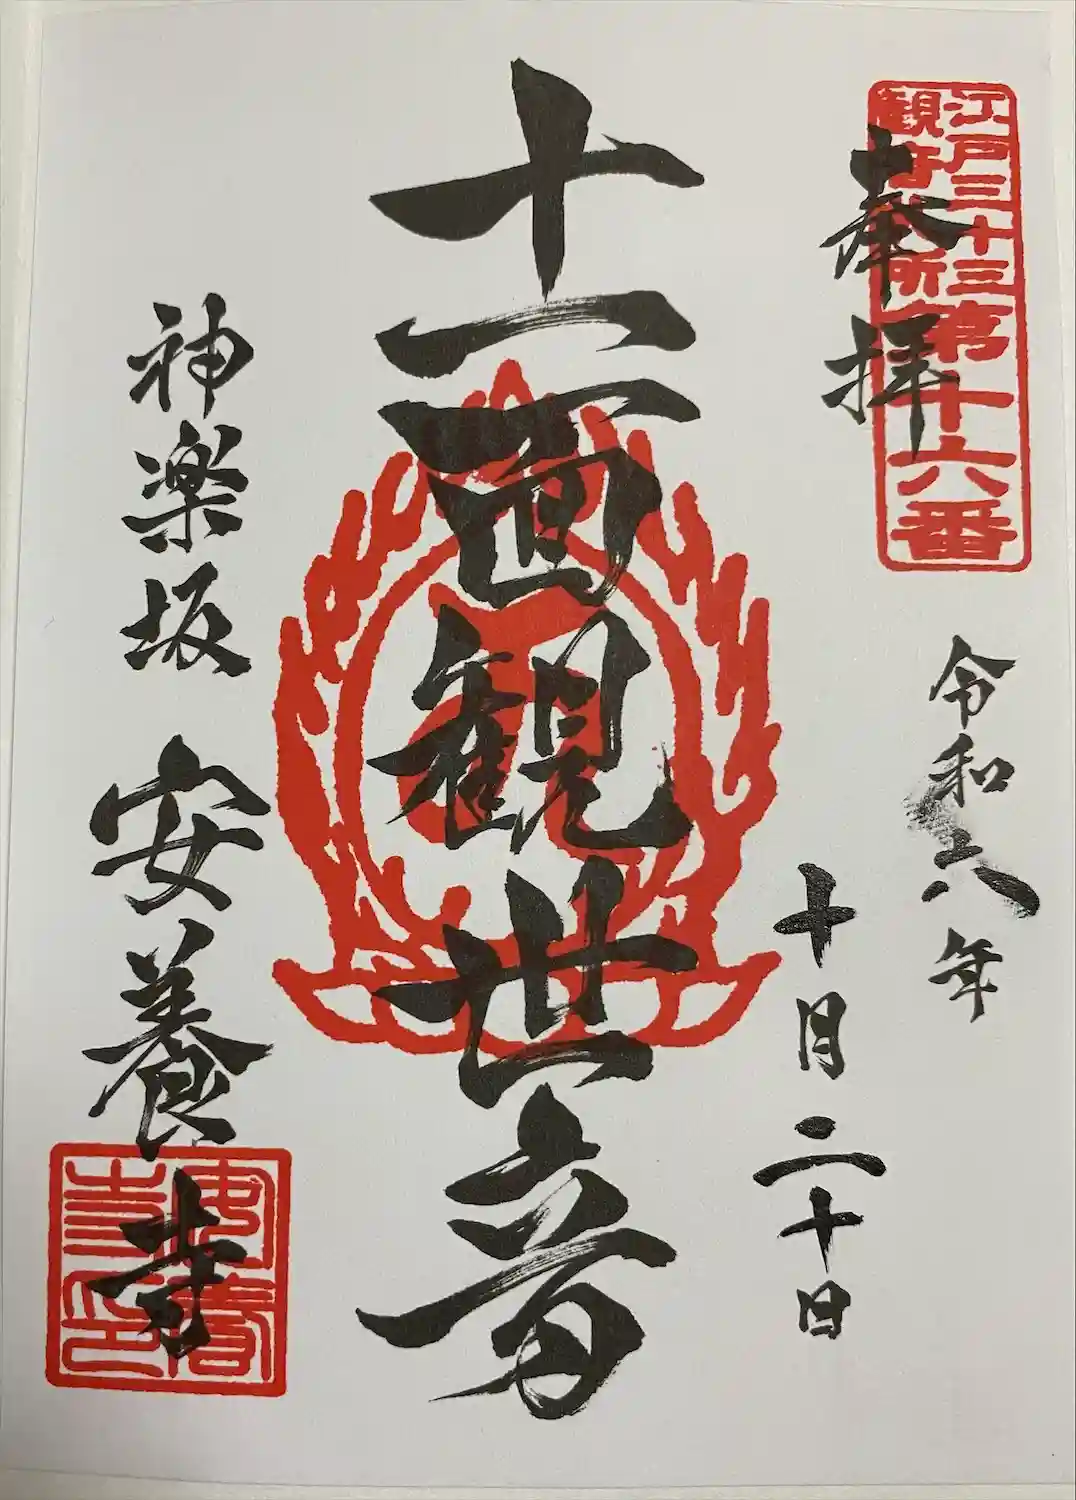 江戸三十三
観音札所第十六番
奉拝
令和六年
十月二十日
十一面観世音
神楽坂 安養寺
安養
寺印